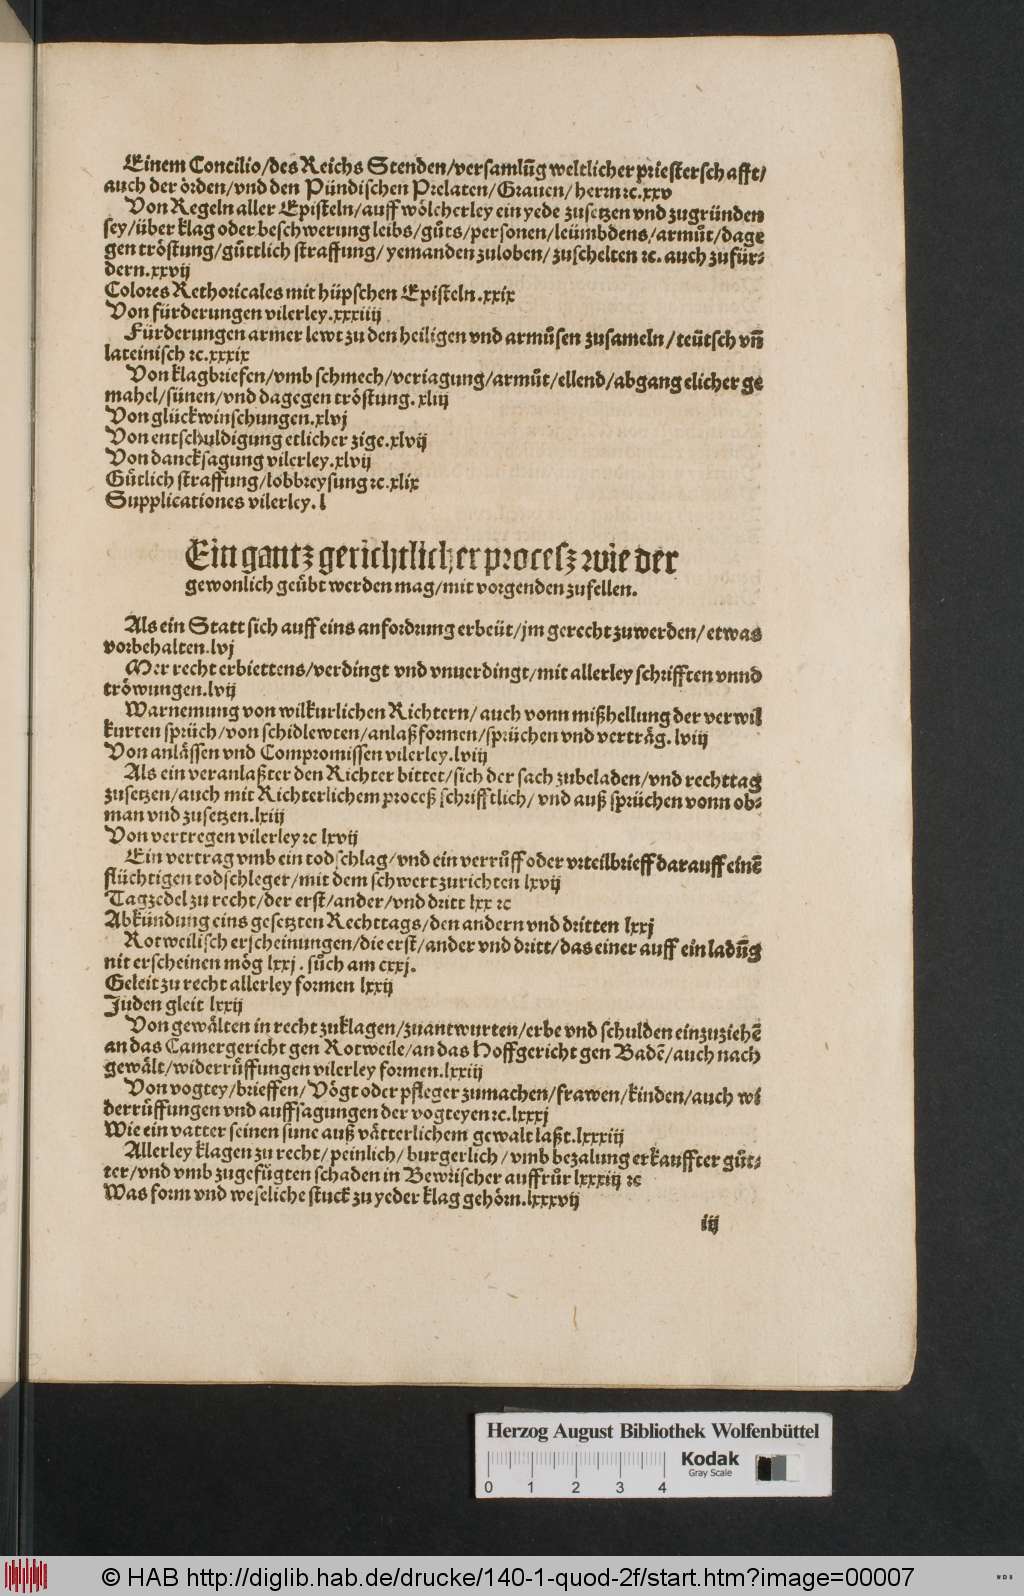 Einem Concilio/des Reichs Stenden/versamlũg weltlicher priesterschafft/
auch der örden/vnd den Pündischen Prelaten/Grauen/herrn ꝛc.xxv
Von Regeln aller Episteln/auff wölcherley ein yede zusetzen vnd zugründen
sey/über klag oder beschwerung leibs/gůts/personen/leümbdens/armůt/dage
gen tröstung/gůttlich straffung/yemanden zuloben/zuschelten ꝛc. auch zufür⸗
dern.xxvij
Colores Rethoricales mit hüpschen Episteln.xxix
Von fürderungen vilerley.xxxiiij
Fürderungen armer lewt zu den heiligen vnd armůsen zusameln/teütsch vñ
lateinisch ꝛc.xxxix
Von klagbriefen/vmb schmech/veriagung/armůt/ellend/abgang elicher ge
mahel/sünen/vnd dagegen tröstung.xliij
Von glückwinschungen.xlvj
Von entschuldigung etlicher zige.xlvij
Von dancksagung vilerley.xlvij
Gůtlich straffung/lobbreysung ꝛc.xlix
Supplicationes vilerley.l
Ein gantz gerichtlicher procesz wie der
gewonlich geübt werden mag/mit vorgenden zufellen.
Als ein Statt sich auff eins anfordrung erbeüt/jm gerecht zuwerden/etwas
vorbehalten.lvj
Mer recht erbiettens/verdingt vnd vnuerdingt/mit allerley schrifften vnnd
tröwungen.lvij
Warnemung von wilkurlichen Richtern/auch vonn mißhellung der verwil
kurten sprüch/von schidlewten/anlaßformen/sprüchen vnd verträg.lviij
Von anlässen vnd Compromissen vilerley.lviij
Als ein veranlaßter den Richter bittet/sich der sach zubeladen/vnd rechttag
zusetzen/auch mit Richterlichem proceß schrifftlich/vnd auß sprüchen vonn ob⸗
man vnd zusetzen.lxiij
Von vertregen vilerley ꝛc lxvij
Ein vertrag vmb ein todschlag/vnd ein verrůff oder vrteilbrieff darauff einẽ
flüchtigen todschleger/mit dem schwert zurichten lxvij
Tagzedel zu recht/der erst/ander/vnd dritt lxx ꝛc
Abkündung eins gesetzten Rechttags/den andern vnd dritten lxxj
Rotweilisch erscheinungen/die erst/ander vnd dritt/das einer auff ein ladũg
nit erscheinen mög lxxj. sůch am cxxj.
Geleit zu recht allerley formen lxxij
Juden gleit lxxij
Von gewälten in recht zuklagen/zuantwurten/erbe vnd schulden einzuziehẽ
an das Camergericht gen Rotweile/an das Hoffgericht gen Badẽ/auch nach
gewält/widerrůffungen vilerley formen.lxxiij
Von vogtey/brieffen/Vögt oder pfleger zumachen/frawen/kinden/auch wi
derrůffungen vnd auffsagungen der vogteyen ꝛc.lxxxj
Wie ein vatter seinen sune auß vätterlichem gewalt laßt.lxxxiij
Allerley klagen zu recht/peinlich/burgerlich/vmb bezalung erkauffter gůt⸗
ter/vnd vmb zugefügten schaden in Bewrischer auffrůr lxxxiij ꝛc
Was form vnd weseliche stuck zu yeder klag gehörn.lxxxvij
iij
Herzog August Bibliothek Wolfenbüttel
0 1 2 3 4
Kodak
Gray Scale
© HAB http://diglib.hab.de/drucke/140-1-quod-2f/start.htm?image=00007